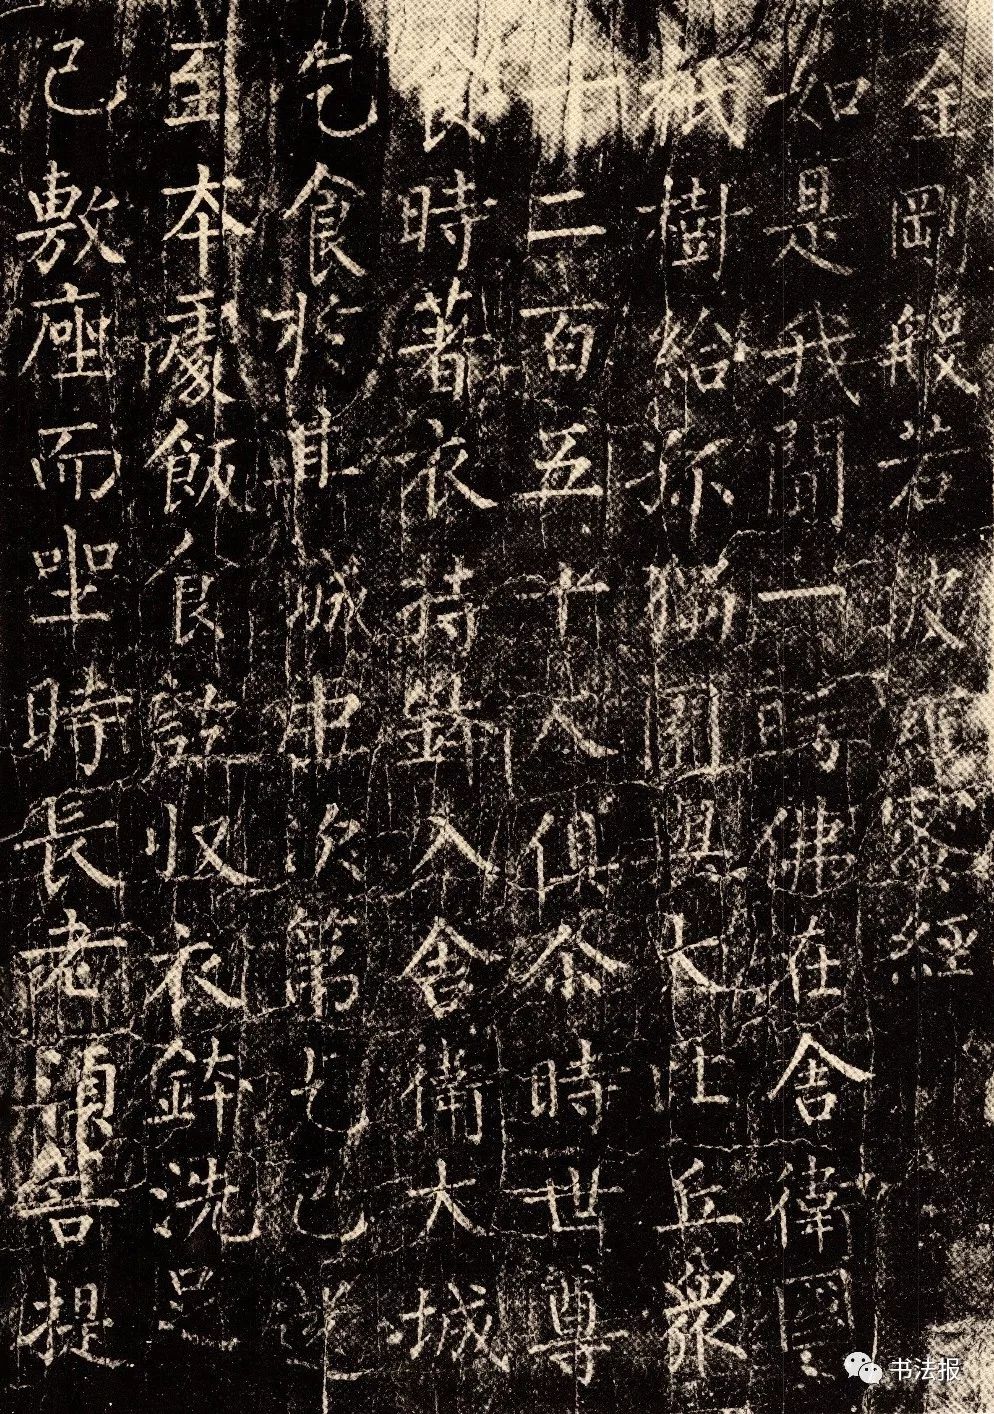 金剛般若波羅蜜經
如是我聞一時佛在舍衛國
祇樹給孤獨園與大比丘衆
千二百五十人俱尒時世尊
食時著衣持鉢入舍衛大城
乞食於其城中次第乞已還
至本處飯食訖收衣鉢洗足
已敷座而坐時長老須菩提
书法报